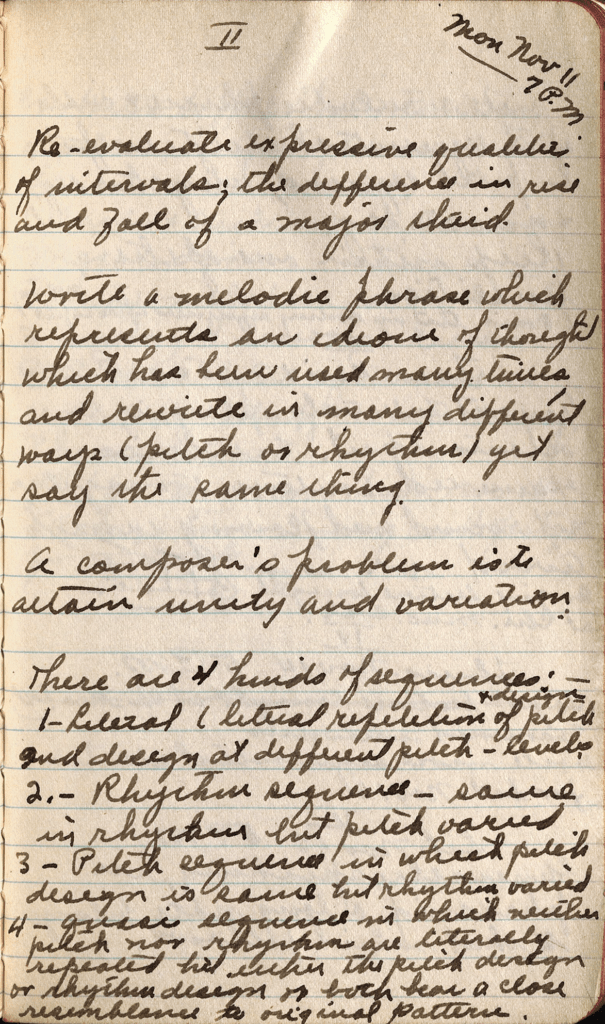 II
Mon Nov 11
7 P.M
Re-evaluate expressive qualities
of intervals; the difference in rise
and fall of a major third.
Write a melodic phrase which
represents an idiom of thought
which has been used many times
and rewrite in many different
ways (pitch or rhythm) yet
say the same thing.
A composer's problem is to
attain unity and variation.
There are 4 kinds of sequences: -
1- Literal ( literal repetition of pitch
x design
and design at different pitch - levels
2. - Rhythm sequence - same
in rhythm but pitch varied
3 - Pitch sequence in which pitch
design is same but rhythm varied
4 - quasi sequence in which neither
pitch nor rhythm are literally
repeated but either the pitch design
or rhythm design or both bear a close
resemblance to original pattern.